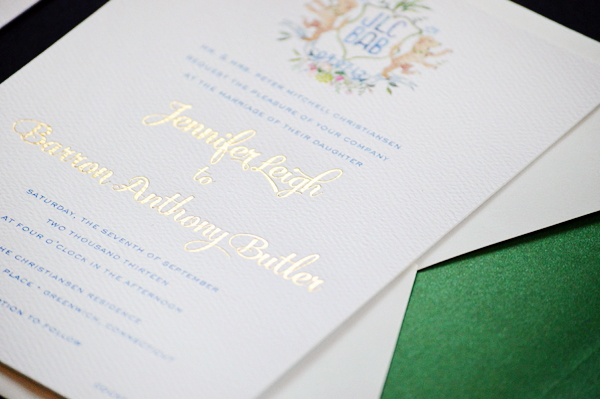 JLC
BAB
MR. & MRS. PETER MITCHELL CHRISTIANSEN
REQUEST THE PLEASURE OF YOUR COMPANY
AT THE MARRIAGE OF THEIR DAUGHTER
Jennifer Leigh
to
Barron Anthony Butler
SATURDAY, THE SEVENTH OF SEPTEMBER
TWO THOUSAND THIRTEEN
AT FOUR O'CLOCK IN THE AFTERNOON
THE CHRISTIANSEN RESIDENCE
PLACE • GREENWICH, CONNECTICUT
TO FOLLOW